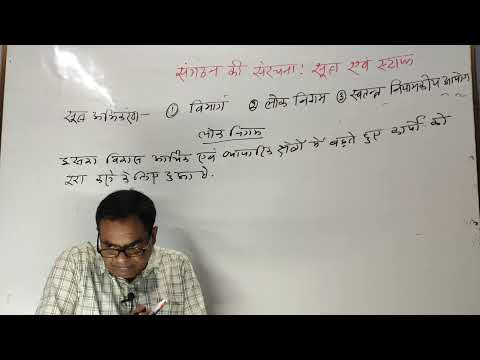 संगठन की संरचना: सूत्र एवं स्टाफ
सूत्र अभिकरण:- ① विभाग ② लोक निगम ③ स्वतन्त्र नियामकीय आयोग
लोक निगम
इसका विकास आर्थिक एवं व्यापारिक क्षेत्रों में बढ़ते हुए कार्यों को
करने के लिए हुआ है.